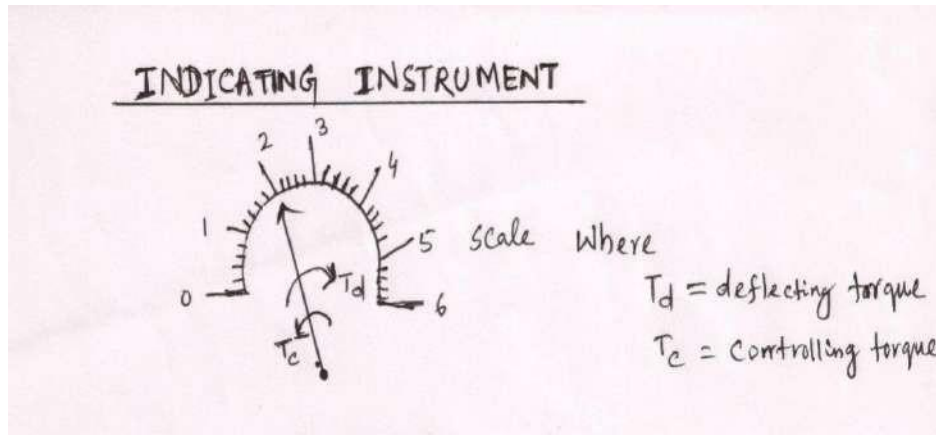 INDICATING INSTRUMENT
3
2
4
1
5 Scale Where
0
Td
6
Td = deflecting torque
Tc
Tc = Controlling torque